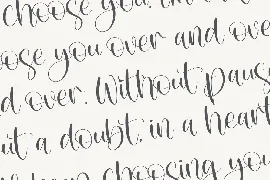 choose you, I'm
ose you over and over
d over. Without paus
ut a doubt, in a heart
keep choosing you